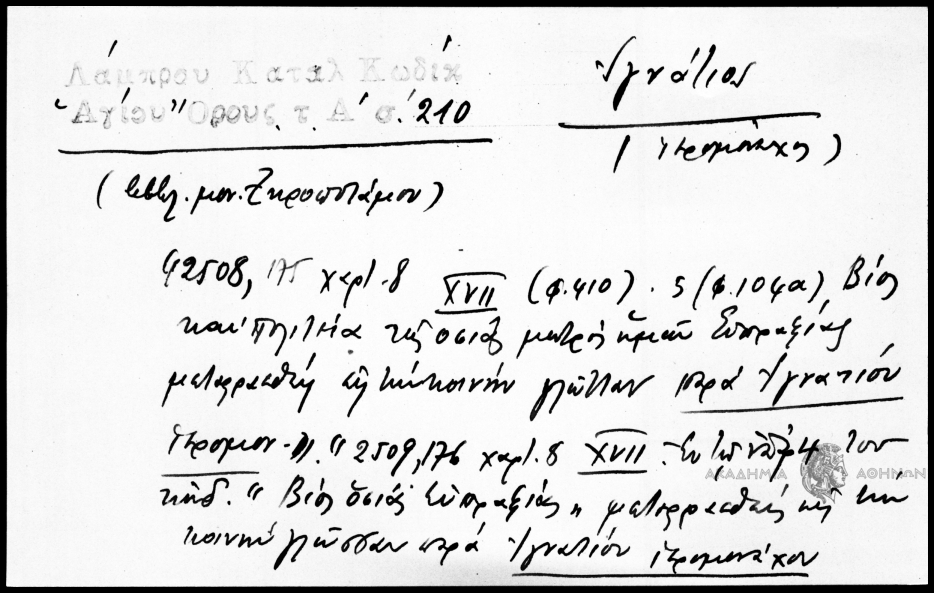 Λάμπρου Καταλ Κωδίκ
Ἁγίου Ὄρους τ Α΄ σ. 210
Ἰγνάτιος
(ἱερομόναχος)
(βιβλ. μον. Ξηροποτάμου)
2508, 175 χαρτ. 8 XVII (φ. 410) . 5 (φ. 104α) Βίος
καὶ πολιτεία τῆς ὁσίας μητρὸς ἡμῶν Εὐπραξίας
μεταφρασθεὶς εἰς τὴν κοινὴν γλῶτταν παρὰ Ἰγνατίου
ἱερομον. 2509, 176 χαρτ. 8 XVII. Ἐν τῷ τοῦ
κώδ. " Βίος ὁσίας Εὐπραξίας μεταφρασθεὶς εἰς τὴν
κοινὴν γλῶσσαν παρὰ Ἰγνατίου ἱερομονάχου
ΑΚΑΔΗΜΙΑ ΑΘΗΝΩΝ